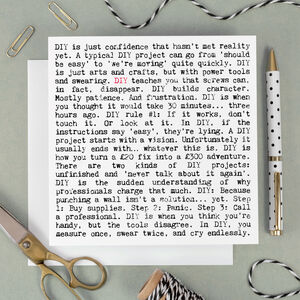 DIY is just confidence that hasn't met reality
yet. A typical DIY project can go from 'should
be easy' to 'we're moving' quite quickly. DIY
is just arts and crafts, but with power tools
and swearing. DIY teaches you that screws can,
in fact, disappear. DIY builds character.
Mostly patience. And frustration. DIY is when
you thought it would take 30 minutes... three
hours ago. DIY rule #1: If it works, don't
touch it. Or look at it. In DIY, if the
instructions say 'easy', they're lying. A DIY
project starts with a vision. Unfortunately it
usually ends with.. whatever this is. DIY is
how you turn a £20 fix into a £300 adventure.
There are two kinds of DIY projects:
unfinished and 'never talk about it again'.
DIY is the sudden understanding of why
professionals charge that much. DIY: Because
punching a wall isn't a solution... yet. Step
1: Buy supplies. Step 2: Panic. Step 3: Call
a professional. DIY is when you think you're
handy, but the tools disagree. In DIY, you
measure once, swear twice, and cry endlessly.